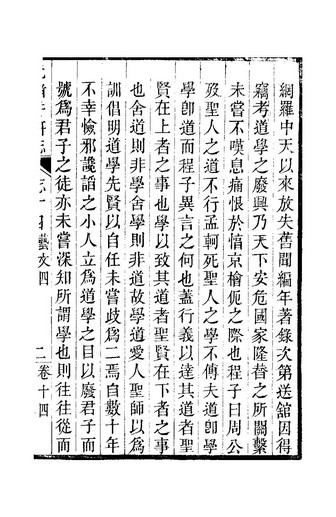 網羅中天以來放失舊聞編年著錄次第送舘因得
竊考道學之廢興乃天下安危國家隆替之所關繫
未嘗不嘆息痛恨於惇京檜侂之際也程子曰周公
歿聖人之道不行孟軻死聖人之學不傳夫道卽學
學卽道而程子異言之何也蓋行義以達其道者聖
賢在上者之事也學以致其道者聖賢在下者之事
也舍道則非學舍學則非道故學道愛人聖師以爲
訓倡明道學先賢以自任未嘗歧爲二焉自數十年
不幸憸邪讒諂之小人立爲道學之目以廢君子而
號爲君子之徒亦未嘗深知所謂學也則往往從而
志十四藝文四
二卷十四